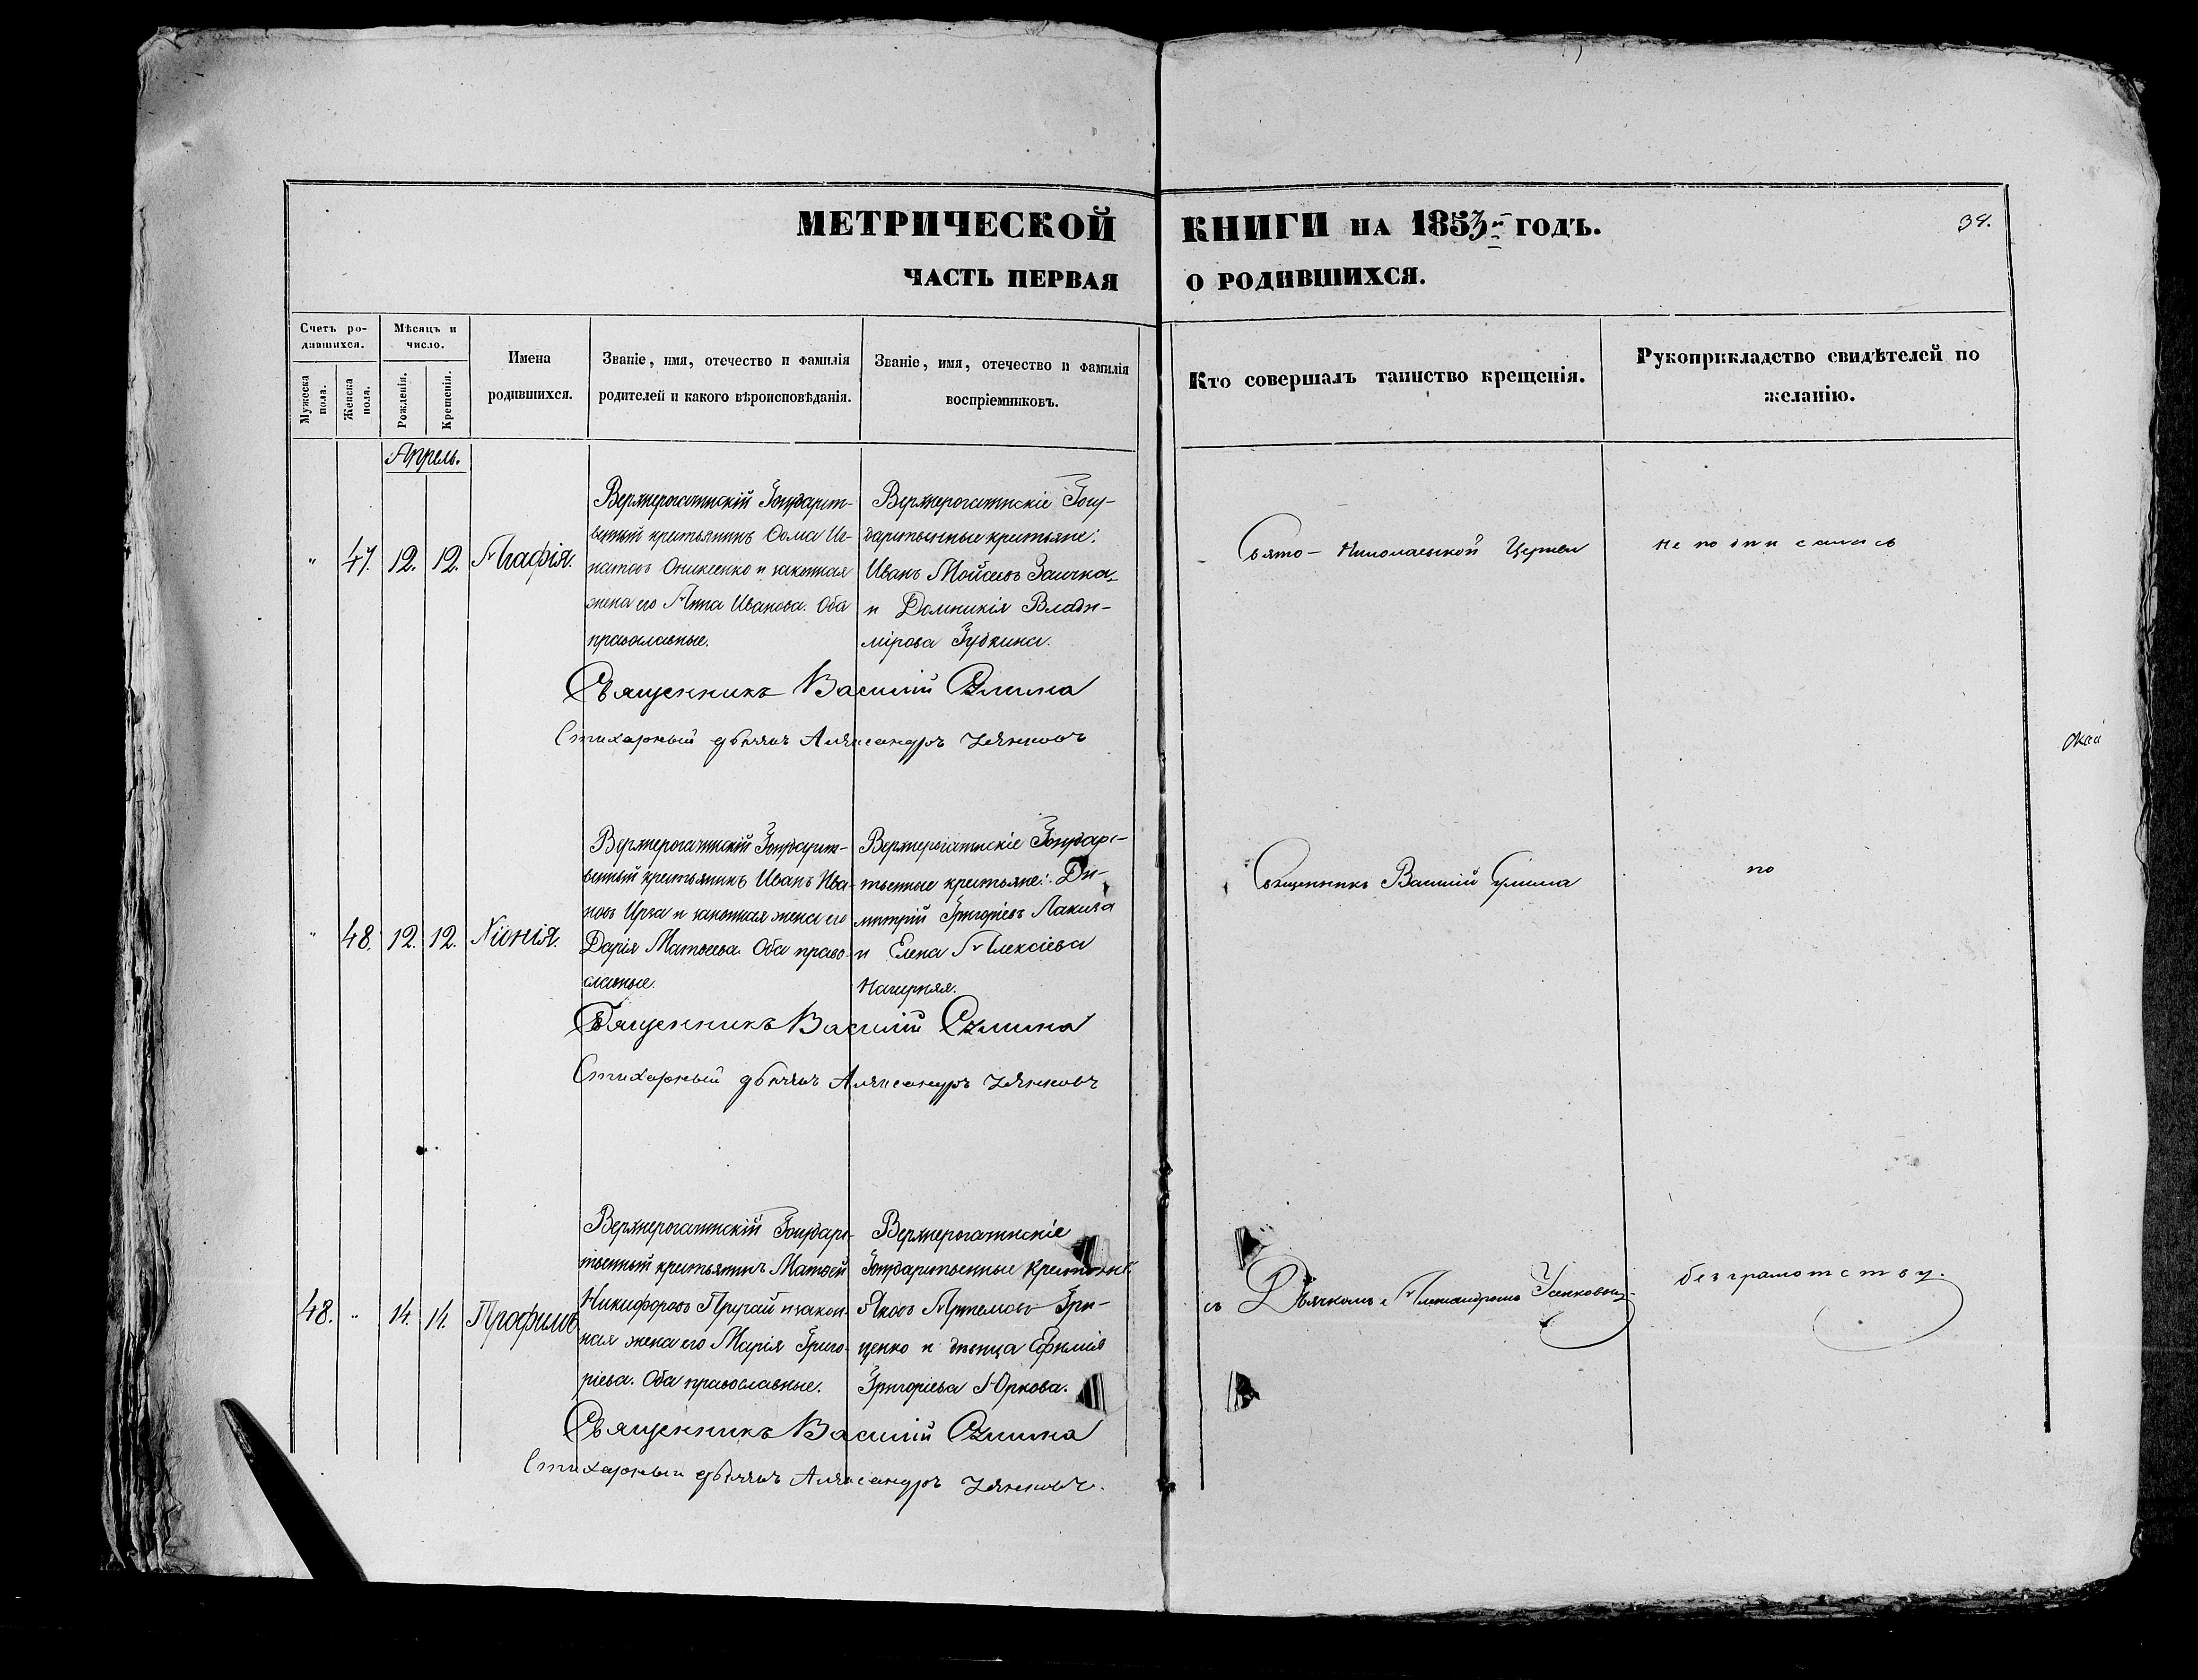 МЕТРИЧЕСКОЙ КНИГИ НА 1853-й ГОДЪ.
34.
ЧАСТЬ ПЕРВАЯ О РОДИВШИХСЯ.
Счетъ ро-
дившихся.
Мужеска пола.
Женска пола.
Мѣсяцъ и
число.
Рожденія.
Крещенія.
Имена
родившихся.
Званіе, имя, отечество и фамилія
родителей и какого вѣроисповѣданія.
Званіе, имя, отечество и фамилія
воспріемниковъ.
Кто совершалъ таинство крещенія.
Рукоприкладство свидѣтелей по
желанію.
Апрель.
" 47. 12. 12. Агафія.
Верхнерогачикскій Государст-
венный крестьянинъ Ѳома Иг-
натовъ Онисенко и законная
жена его Анна Иванова. Оба
православные.
Верхнерогачикскіе Госу-
дарственные крестьяне:
Иванъ Мойсеевъ Заичка
и Домникія Влади-
мірова Зубкина.
Свято-Николаевской Церкви
не подписались
Священникъ Василій Сулима
Стихарный дьячокъ Александръ Усенковъ
" 48. 12. 12. Хіонія.
Верхнерогачикскій Государст-
венный крестьянинъ Иванъ Ива-
новъ и законная жена его
Дарія Матѳеева. Оба право-
славные.
Верхнерогачикскіе Государс-
твенные крестьяне: Ди-
митрій Григоріевъ Лакиза
и Елена Алексіева
Священникъ Василій Сулима
по
Священникъ Василій Сулима
Стихарный дьячокъ Александръ Усенковъ
48. " 14. 14. Трофимъ
Верхнерогачикскій Государс-
твенный крестьянинъ Матѳей
Никифоровъ Пругай и закон-
ная жена его Марія Григо-
ріева. Оба православные.
Верхнерогачикскіе
Государственные крестьяне:
Яковъ Артемовъ Гри-
ценко и дѣвица Ефимія
Григоріева Юркова.
съ Дьячкомъ Александромъ Усенковымъ
безграмотству.
Священникъ Василій Сулима
Стихарный дьячокъ Александръ Усенковъ.